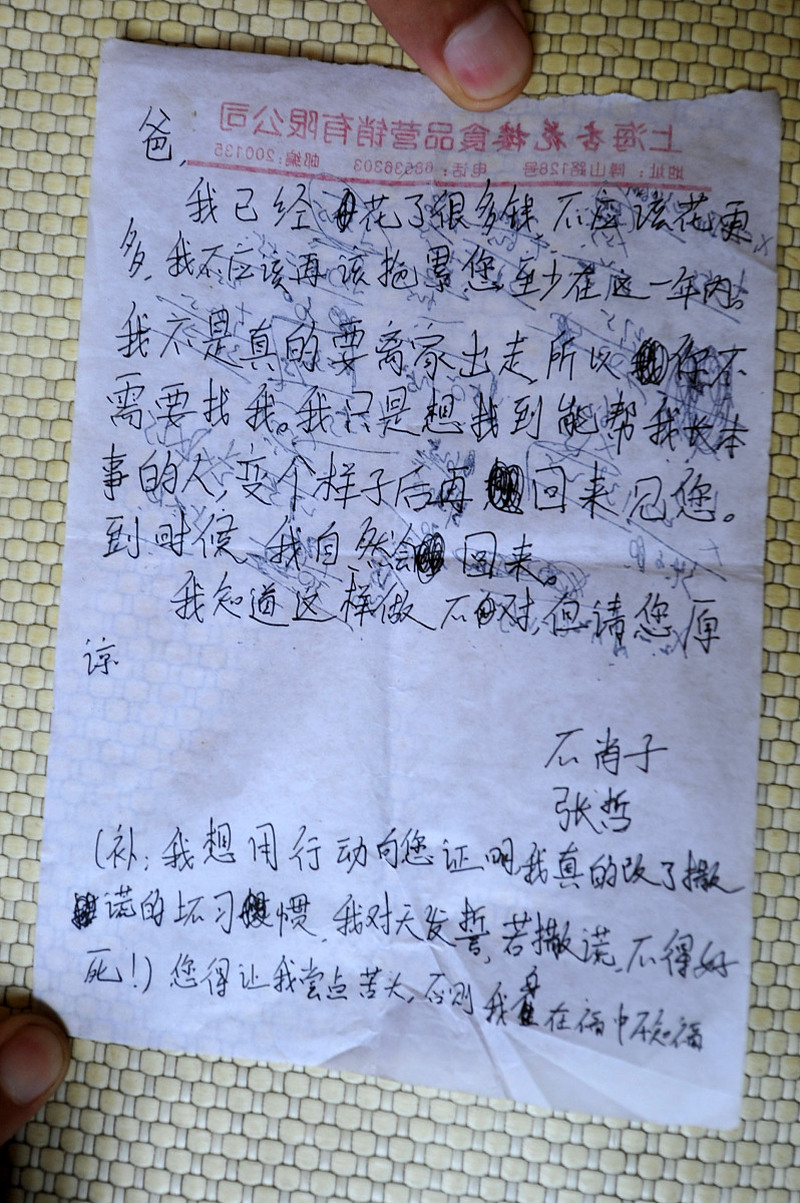 上海杏花楼食品营销有限公司
地址：博山路128号 电话：68536303 邮编：200135
爸，
我已经花了很多钱，不应该花更
多，我不应该再该拖累您，至少在这一年内。
我不是真的要离家出走，所以你不
需要找我。我只是想找到能帮我长本
事的人，变个样子后再回来见您。
到时候，我自然会回来。
我知道这样做不对，但请您原
谅
不肖子
张哲
（补：我想用行动向您证明我真的改了撒
谎的坏习惯，我对天发誓，若撒谎，不得好
死！）您得让我尝点苦头，否则我在福中不知福